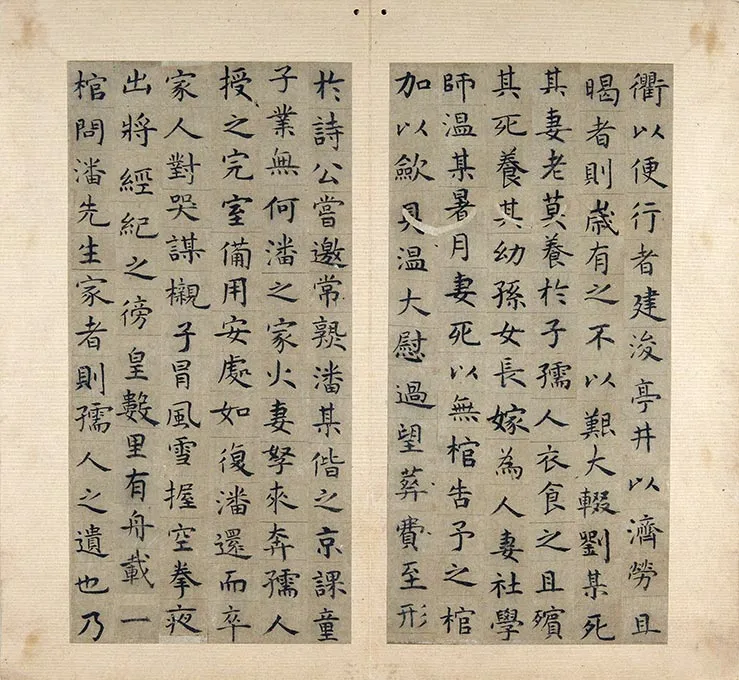 衢以便行者建浚亭井以濟勞且
暍者則嵗有之不以艱大輟劉某死
其妻老莫養於子孺人衣食之且殯
其死養其幼孫女長嫁為人妻社學
師温某暑月妻死以無棺告予之棺
加以歛具温大慰過望葬費至形
扵詩公嘗邀常熟潘某偕之京課童
子業無何潘之家火妻孥來奔孺人
授之完室備用安處如復潘還而卒
家人對哭謀櫬子冒風雪握空拳夜
出將經紀之徬皇數里有舟載一
棺問潘先生家者則孺人之遺也乃